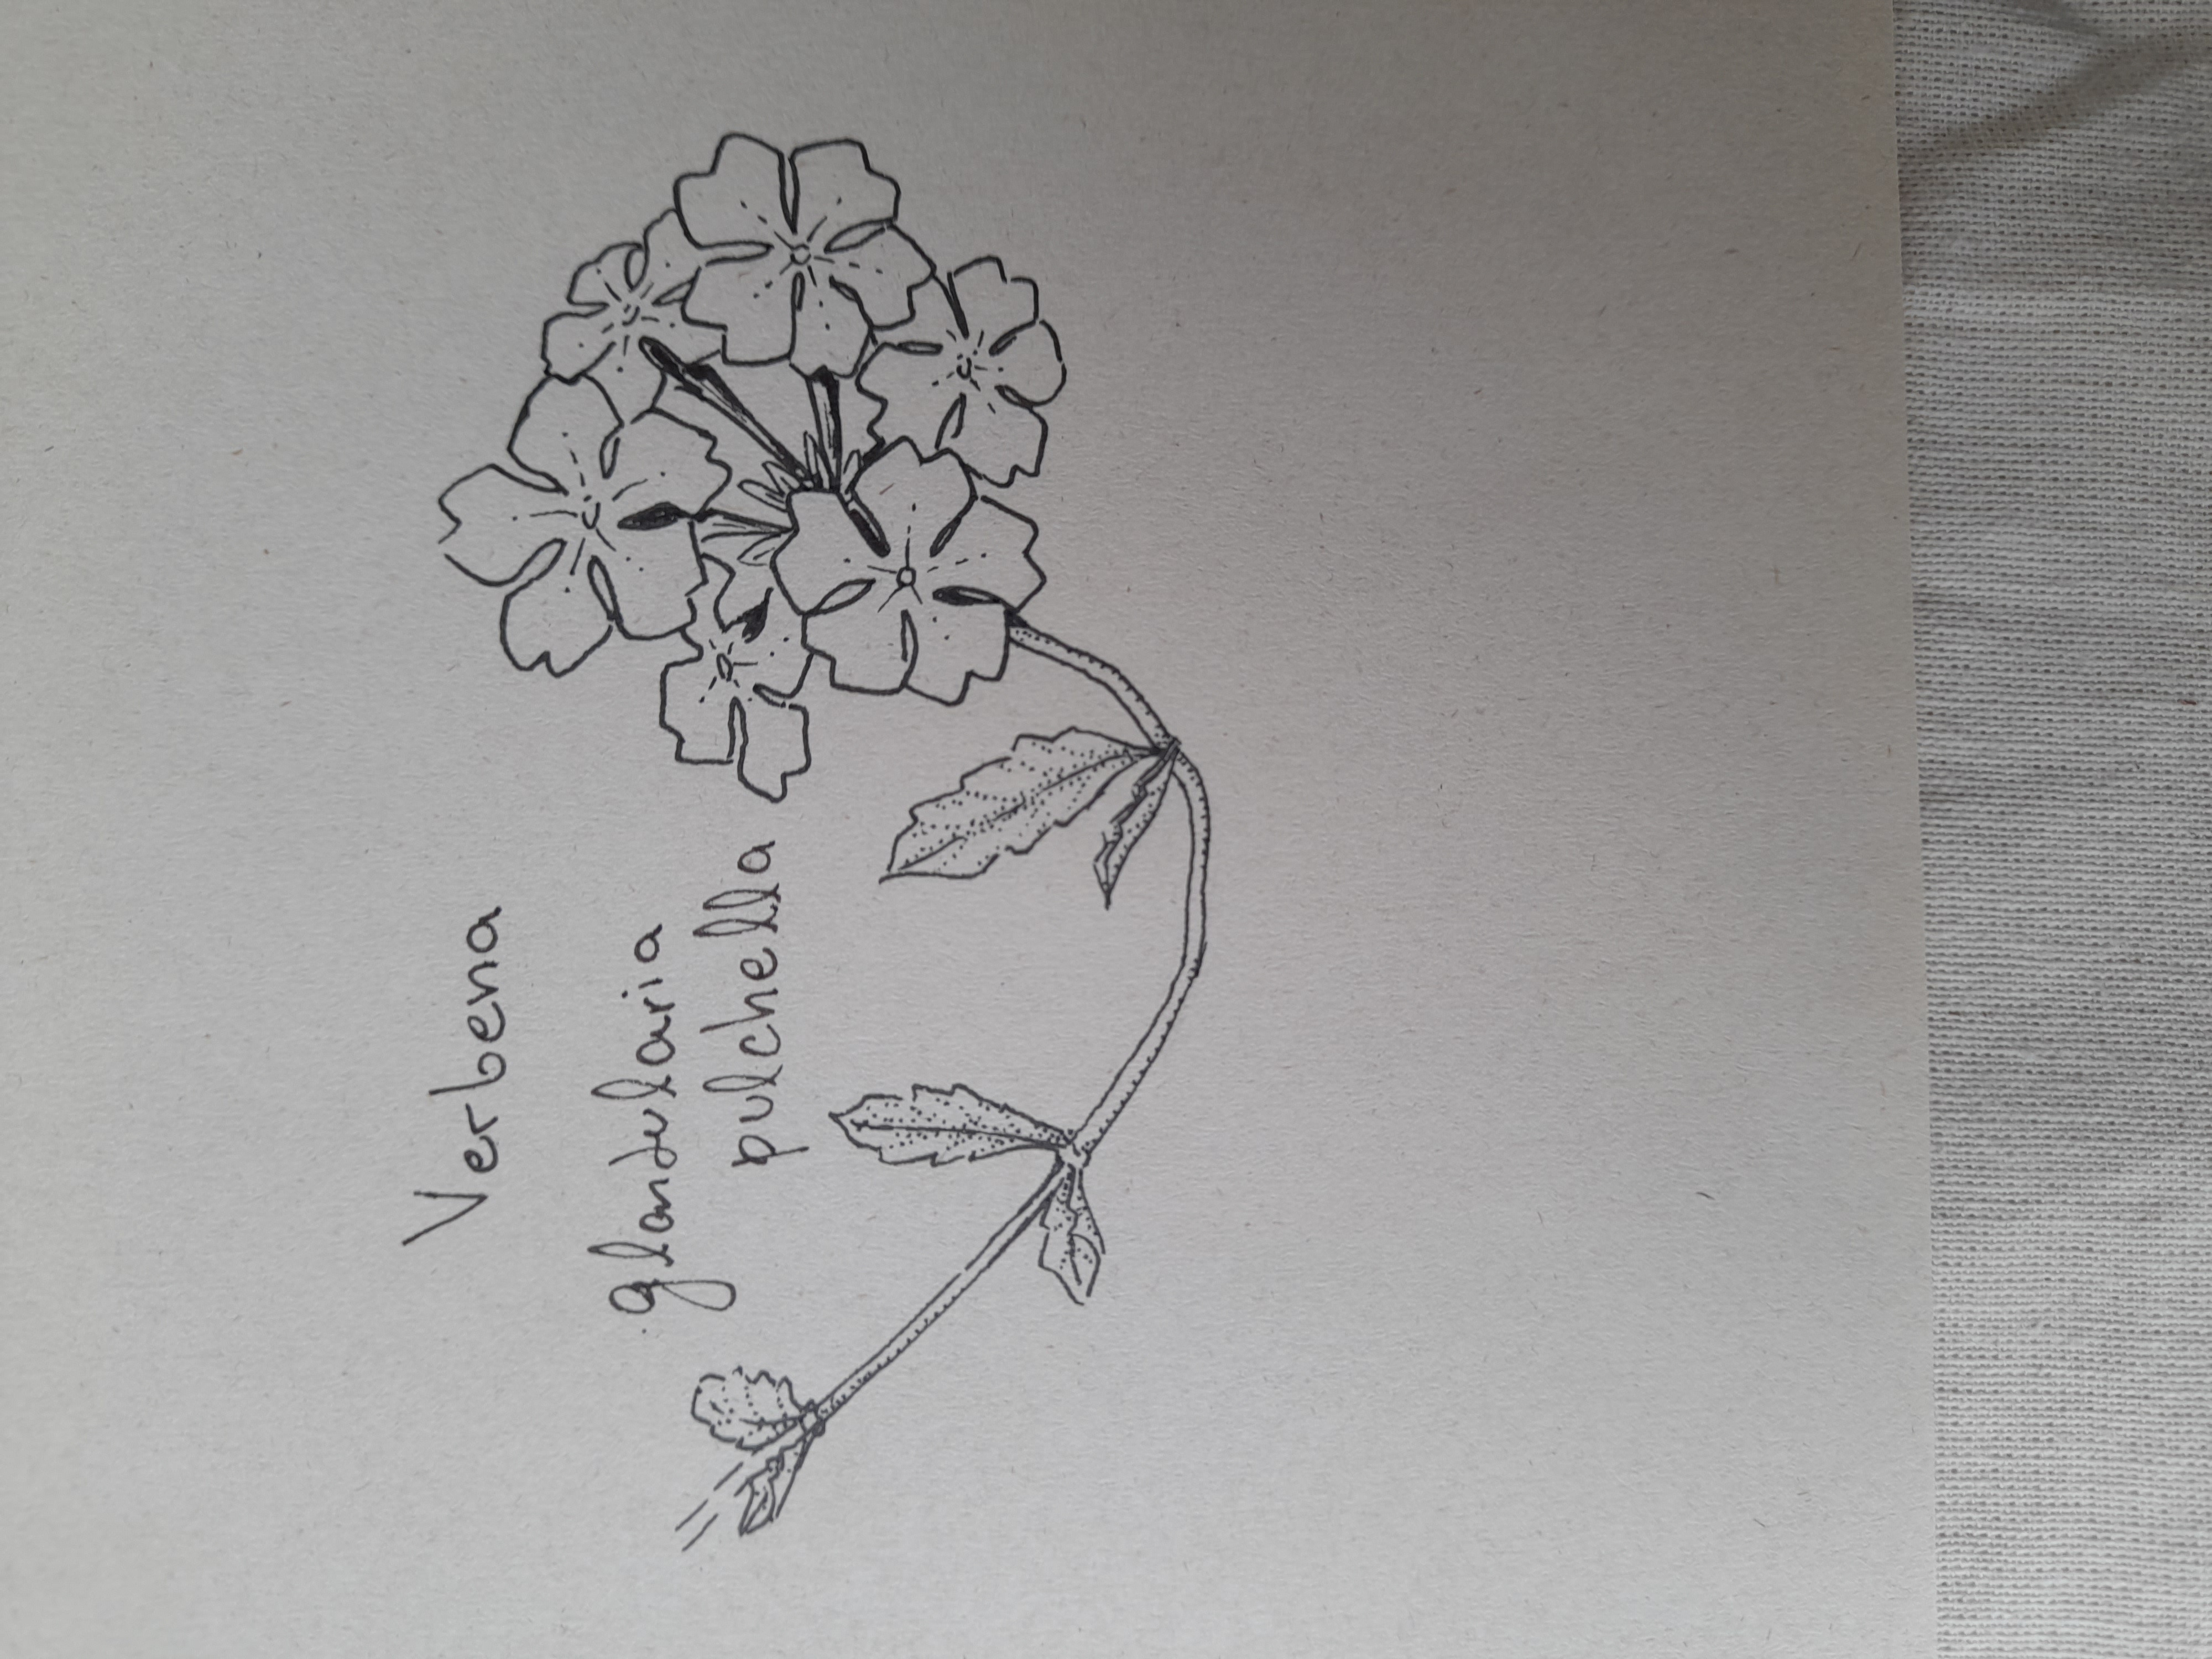 Verbena
glandularia
pulchella